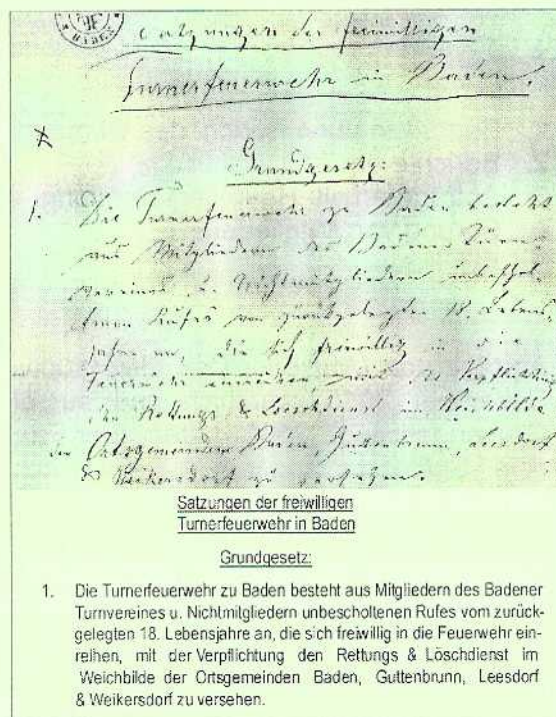 BADEN
Satzungen der freiwilligen
Turnerfeuerwehr in Baden.
Grundgesetz:
1. Die Turnerfeuerwehr zu Baden besteht
aus Mitgliedern des Badener Turn-
vereines u. Nichtmitgliedern unbeschol-
tenen Rufes vom zurückgelegten 18. Lebens-
jahre an, die sich freiwillig in die
Feuerwehr einreihen, mit der Verpflichtung
den Rettungs & Loeschdienst im Weichbilde
der Ortsgemeinden Baden, Guttenbrunn, Leesdorf
& Weikersdorf zu versehen.
Satzungen der freiwilligen
Turnerfeuerwehr in Baden
Grundgesetz:
1. Die Turnerfeuerwehr zu Baden besteht aus Mitgliedern des Badener
Turnvereines u. Nichtmitgliedern unbescholtenen Rufes vom zurück-
gelegten 18. Lebensjahre an, die sich freiwillig in die Feuerwehr ein-
reihen, mit der Verpflichtung den Rettungs & Löschdienst im
Weichbilde der Ortsgemeinden Baden, Guttenbrunn, Leesdorf
& Weikersdorf zu versehen.